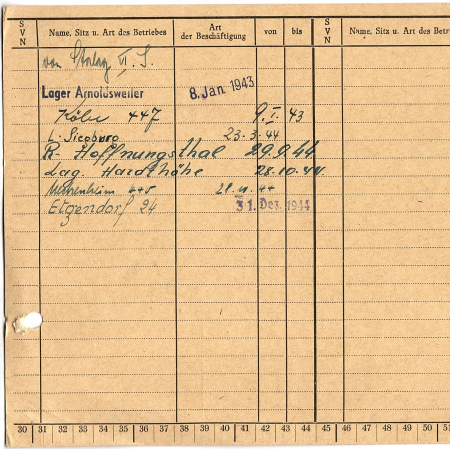 S V N Name, Sitz u. Art des Betriebes Art der Beschäftigung von bis S V N Name, Sitz u. Art des Betri
von Stalag VI. J.
Lager Arnoldsweiler 8. Jan 1943
447 9. I. 43
L. Siegburg 23-3-44
R. Hoffnungsthal 29.9.44
Lag. Hardthöhe 28.10.44
31. Dez. 1944
Etgendorf 24
30 31 32 33 34 35 36 37 38 39 40 41 42 43 44 45 46 47 48 49 50 51